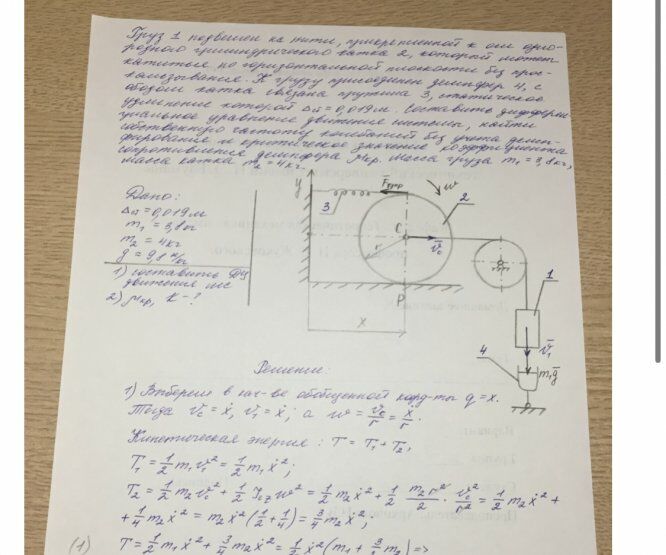 Груз 1 подвешен на нити, прикрепленной к оси одно-
родного цилиндрического катка 2, который может
катиться по горизонтальной плоскости без прос-
кальзывания. К грузу присоединен демпфер 4, с
ободом катка связана пружина 3, статическое
удлинение которой Δст = 0,019м. Составить дифферен-
циальное уравнение движения системы, найти
собственную частоту колебаний без учета демп-
фирования и критическое значение коэффициента
сопротивления демпфера μкр. Масса груза m₁ = 3,8кг,
масса катка m₂ = 4кг.
Дано:
Δст = 0,019м
m₁ = 3,8кг
m₂ = 4кг
g = 9,8 н/кг
1) составить ДУ
движения мс
2) μкр, K - ?
y
3
F̄упр
ω
2
C
v̄c
r
P
x
1
v̄₁
4
m₁ḡ
Решение:
1) Выберем в кач-ве обобщенной коорд-ты q = x.
Тогда vc = ẋ, v₁ = ẋ; а ω = vc/r = ẋ/r.
Кинетическая энергия: T = T₁ + T₂,
T₁ = 1/2 m₁v₁² = 1/2 m₁ẋ²;
T₂ = 1/2 m₂vc² + 1/2 Jcz ω² = 1/2 m₂ẋ² + 1/2 m₂r²/2 · vc²/r² = 1/2 m₂ẋ² +
+ 1/4 m₂ẋ² = m₂ẋ²(1/2 + 1/4) = 3/4 m₂ẋ²;
(1) T = 1/2 m₁ẋ² + 3/4 m₂ẋ² = 1/2 ẋ²(m₁ + 3/2 m₂) =>